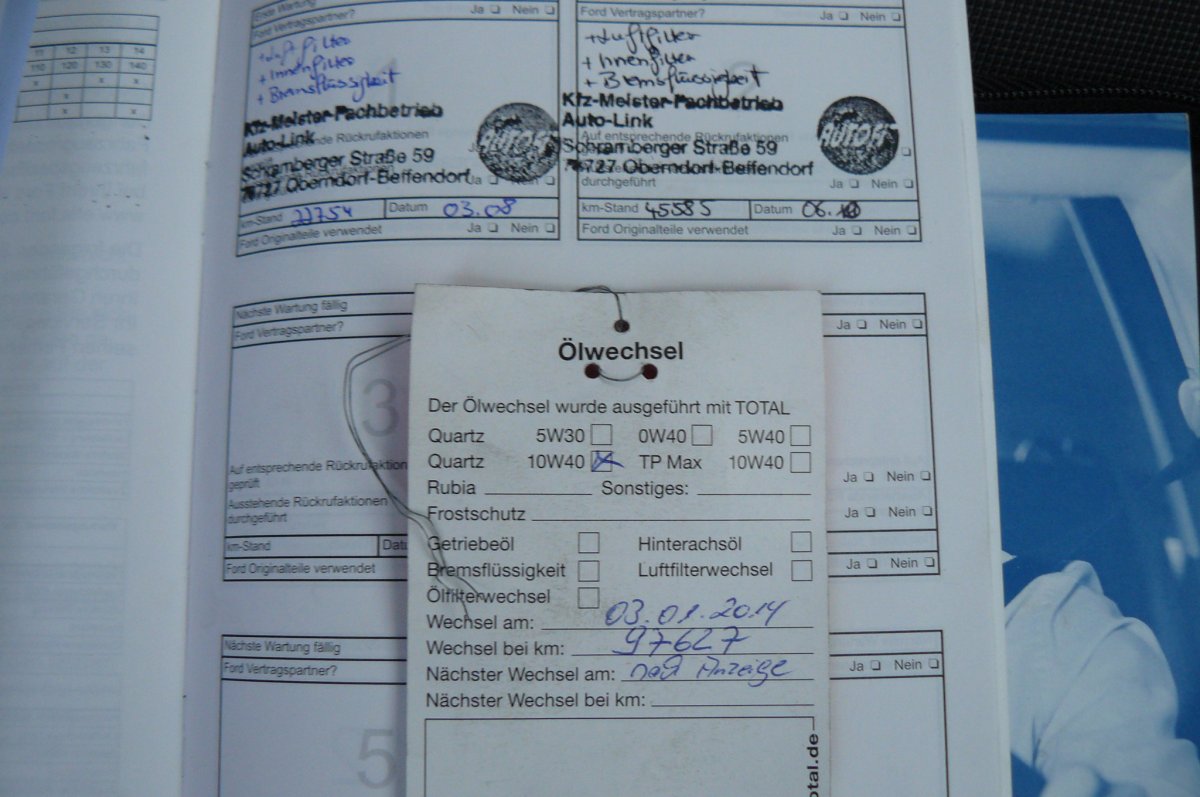 11 12 13 14
110 120 130 140
x x x
x x
Erste Wartung Ja Nein
Ford Vertragspartner?
+ Luftfilter
+ Innenfilter
+ Bremsflüssigkeit
1
Kfz-Meister-Fachbetrieb
Auto-Link
Rückrufaktionen
Schramberger Straße 59
78727 Oberndorf-Beffendorf
Ja Nein
km-Stand 22754 Datum 03.08
Ford Originalteile verwendet Ja Nein
Ford Vertragspartner? Ja Nein
+ Luftfilter
+ Innenfilter
+ Bremsflüssigkeit
2
Kfz-Meister-Fachbetrieb
Auto-Link
Auf entsprechende Rückrufaktionen
Schramberger Straße 59
78727 Oberndorf-Beffendorf
durchgeführt Ja Nein
km-Stand 45585 Datum 06.10
Ford Originalteile verwendet Ja Nein
Nächste Wartung fällig
Ford Vertragspartner?
3
Auf entsprechende Rückrufaktion
geprüft
Ausstehende Rückrufaktionen
durchgeführt
km-Stand Dat
Ford Originalteile verwendet
Ja Nein
Ja Nein
Ja Nein
Ja Nein
Nächste Wartung fällig
Ford Vertragspartner?
5
Ja Nein
Ölwechsel
Der Ölwechsel wurde ausgeführt mit TOTAL
Quartz 5W30 0W40 5W40
Quartz 10W40 x TP Max 10W40
Rubia Sonstiges:
Frostschutz
Getriebeöl Hinterachsöl
Bremsflüssigkeit Luftfilterwechsel
Ölfilterwechsel
Wechsel am: 03.01.2014
Wechsel bei km: 97627
Nächster Wechsel am: nach Anzeige
Nächster Wechsel bei km:
otal.de